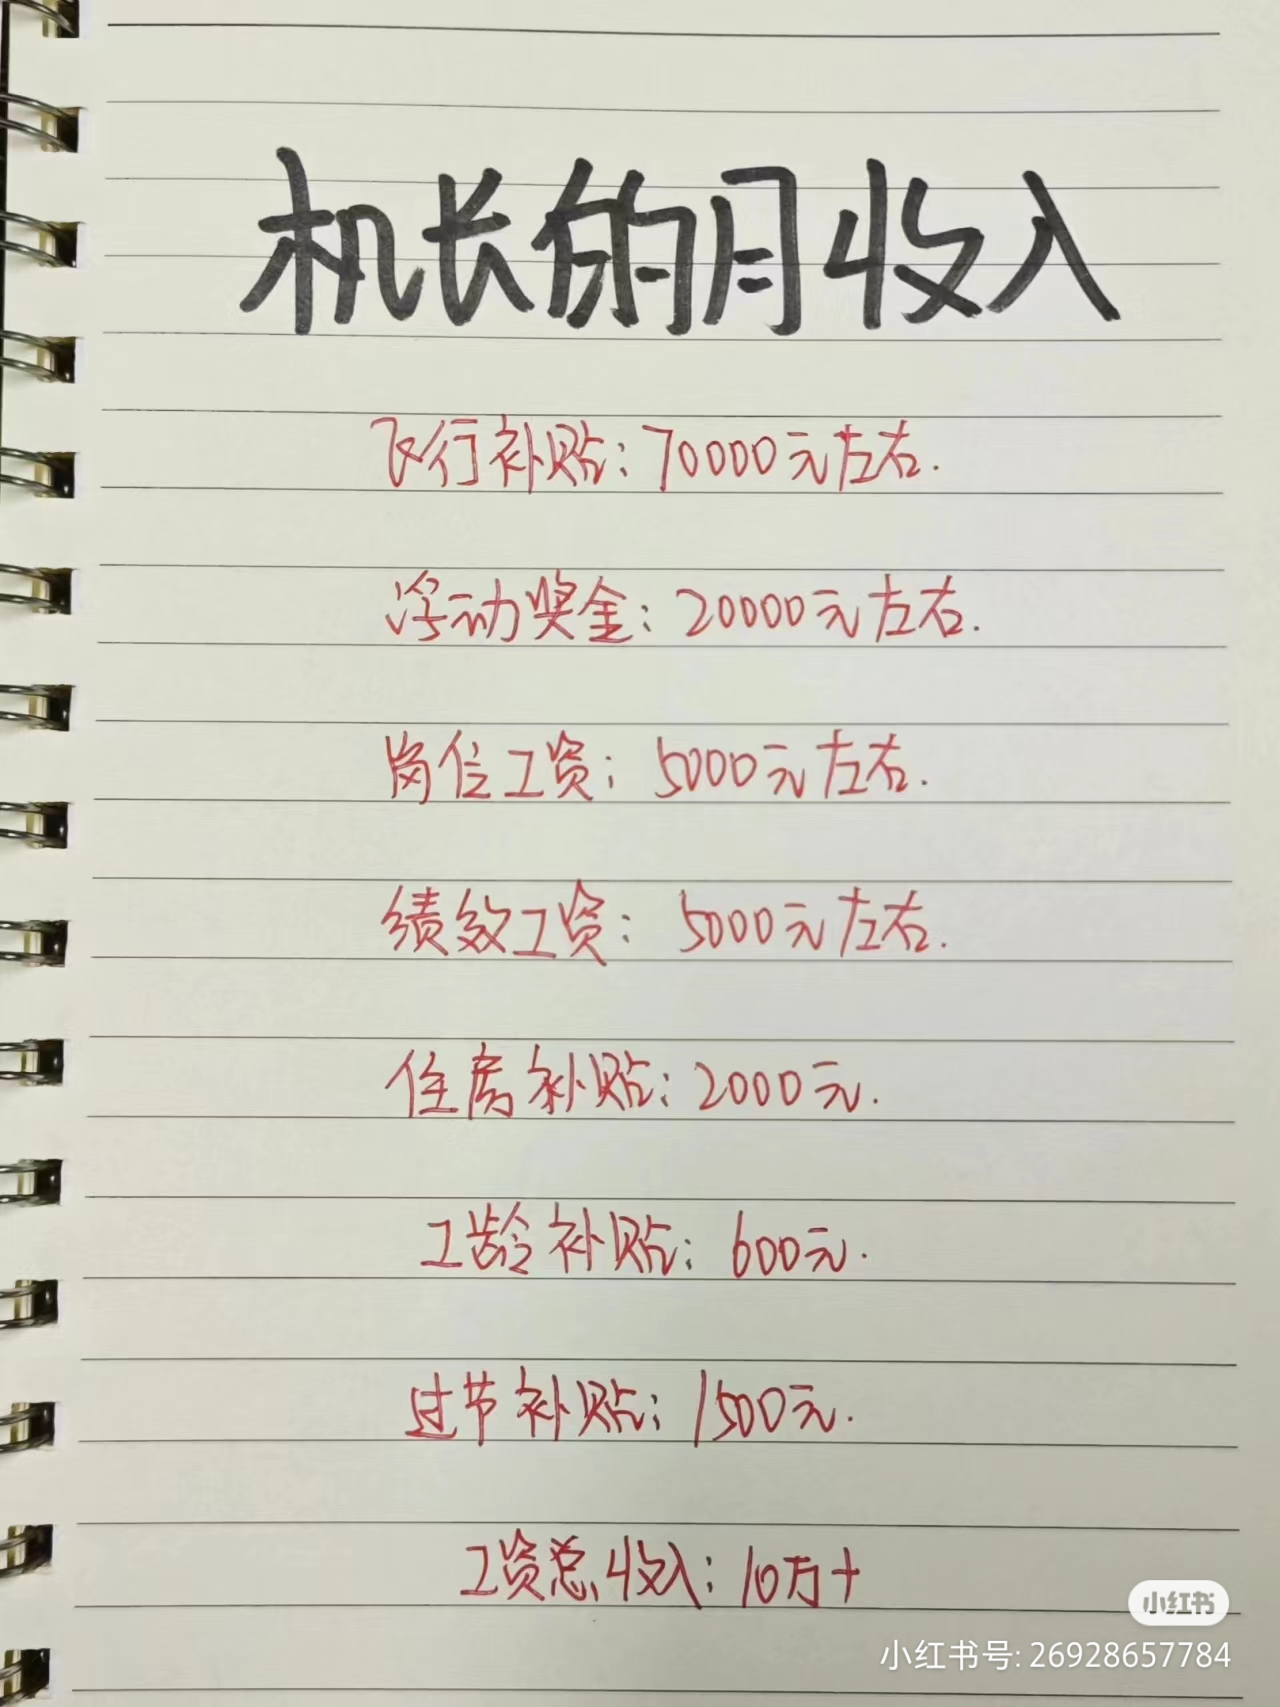 机长的月收入
飞行补贴：70000元左右.
浮动奖金：20000元左右.
岗位工资：5000元左右.
绩效工资：5000元左右.
住房补贴：2000元.
工龄补贴：600元.
过节补贴：1500元.
工资总收入：10万+
小红书
小红书号: 26928657784